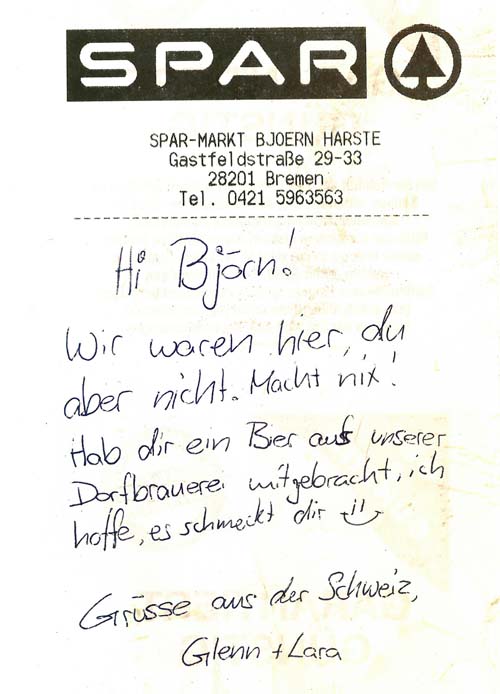 SPAR
SPAR-MARKT BJOERN HARSTE
Gastfeldstraße 29-33
28201 Bremen
Tel. 0421 5963563
Hi Björn!
Wir waren hier, du
aber nicht. Macht nix!
Hab dir ein Bier aus unserer
Dorfbrauerei mitgebracht, ich
hoffe, es schmeckt dir
Grüsse aus der Schweiz,
Glenn + Lara